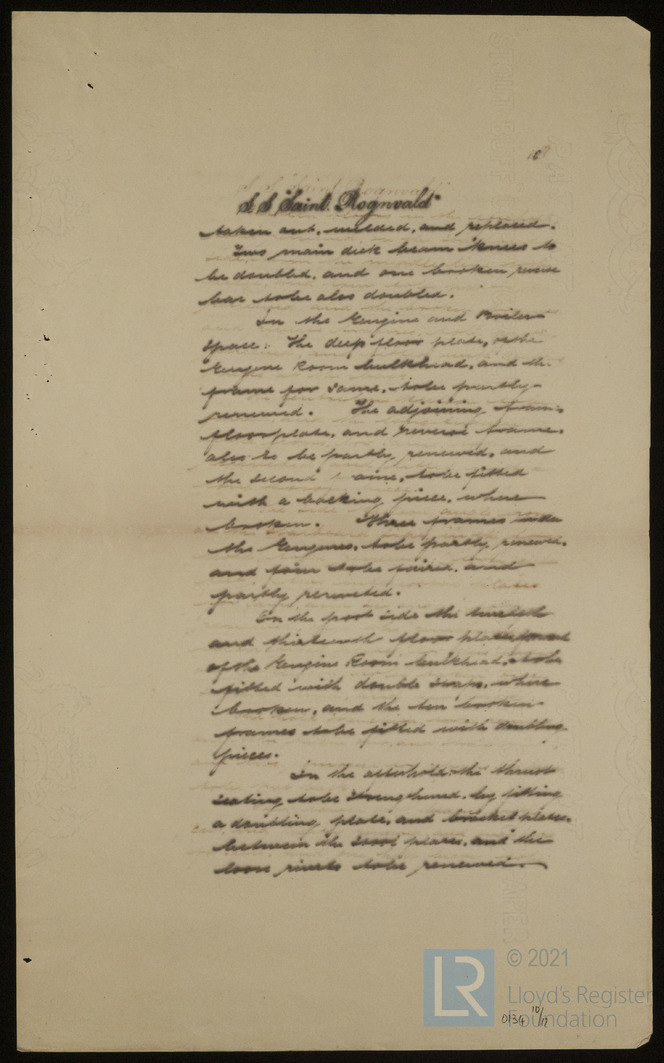 S.S. "Saint Rognvald"
taken out, welded, and replaced.
Two main deck beam knees to
be doubled, and one broken reverse
bar to be also doubled.
In the Engine and Boiler
Space: The deep floor plate, at the
Engine Room bulkhead, and the
frame for same, to be partly
renewed. The adjoining frame,
floorplate, and reverse frame,
also to be partly renewed, and
the second to be fitted
with a backing piece, where
broken. Three frames under
the Engines, to be partly renewed,
and four to be faired and
partly reriveted.
On the port side the twelfth
and thirteenth floor plates forward
of the Engine Room bulkhead, to be
fitted with double straps, where
broken, and the ten broken
frames to be fitted with doubling
pieces.
In the afterhold: the thrust
seating to be strengthened, by fitting
a doubling plate, and bracket plates,
between the plates, and the
loose rivets to be renewed.
© 2021
LR
Lloyd's Register
Foundation